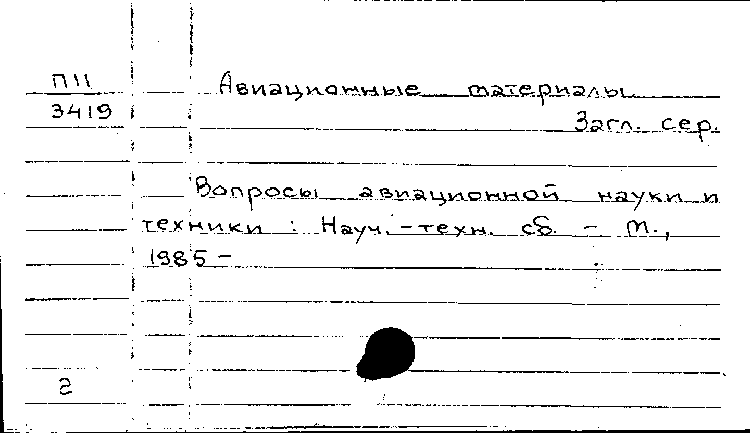 П11
3419
Авиационные материалы
Загл. сер.
Вопросы авиационной науки и
техники : Науч.-техн. сб. – М.,
1985 –
2